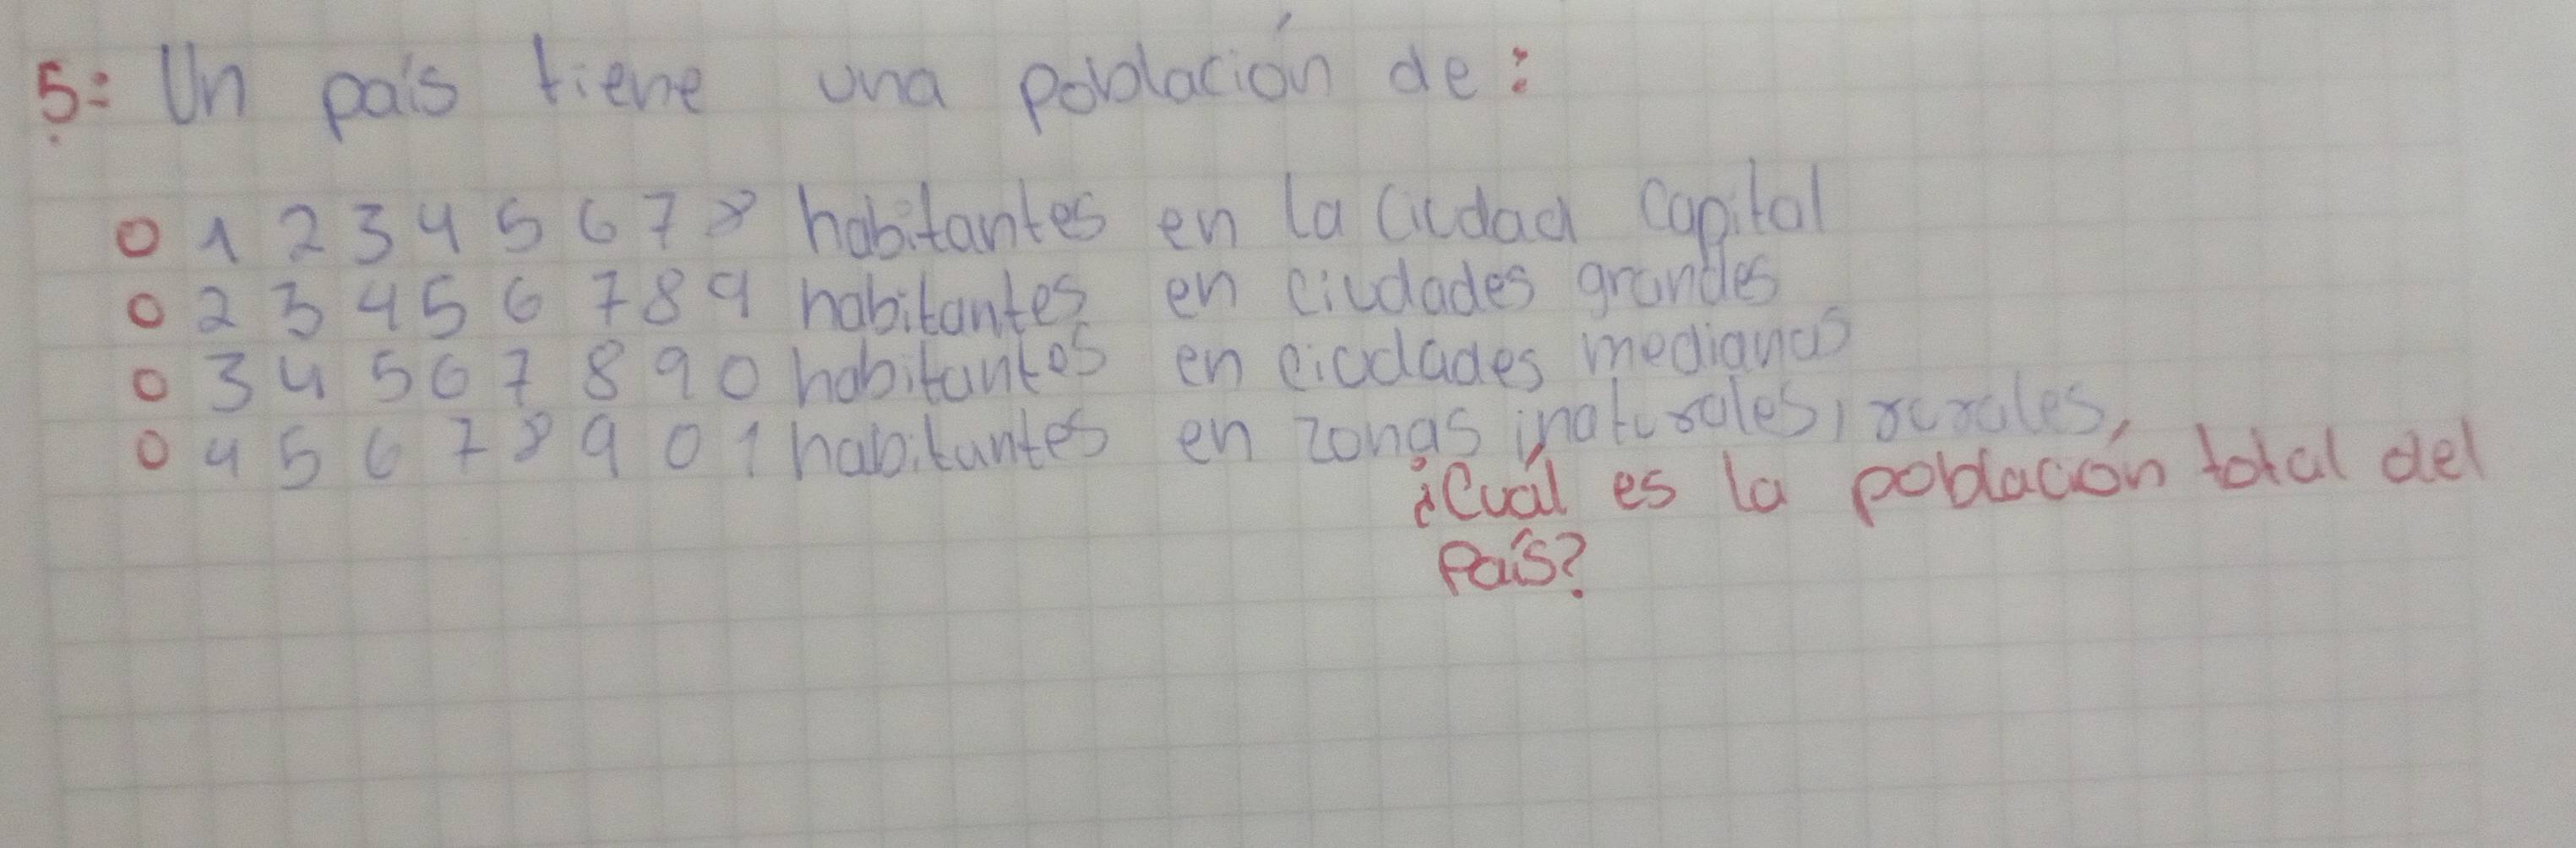 5: Un país tiene una población de:
o 1 2 3 4 5 6 7 8 habitantes en la Ciudad Capital
o 2 3 4 5 6 7 8 9 habitantes en ciudades grandes
o 3 4 5 6 7 8 9 0 habitantes en ciudades medianas
o 4 5 6 7 8 9 0 1 habitantes en zonas rurales,
¿Cuál es la población total del
País?